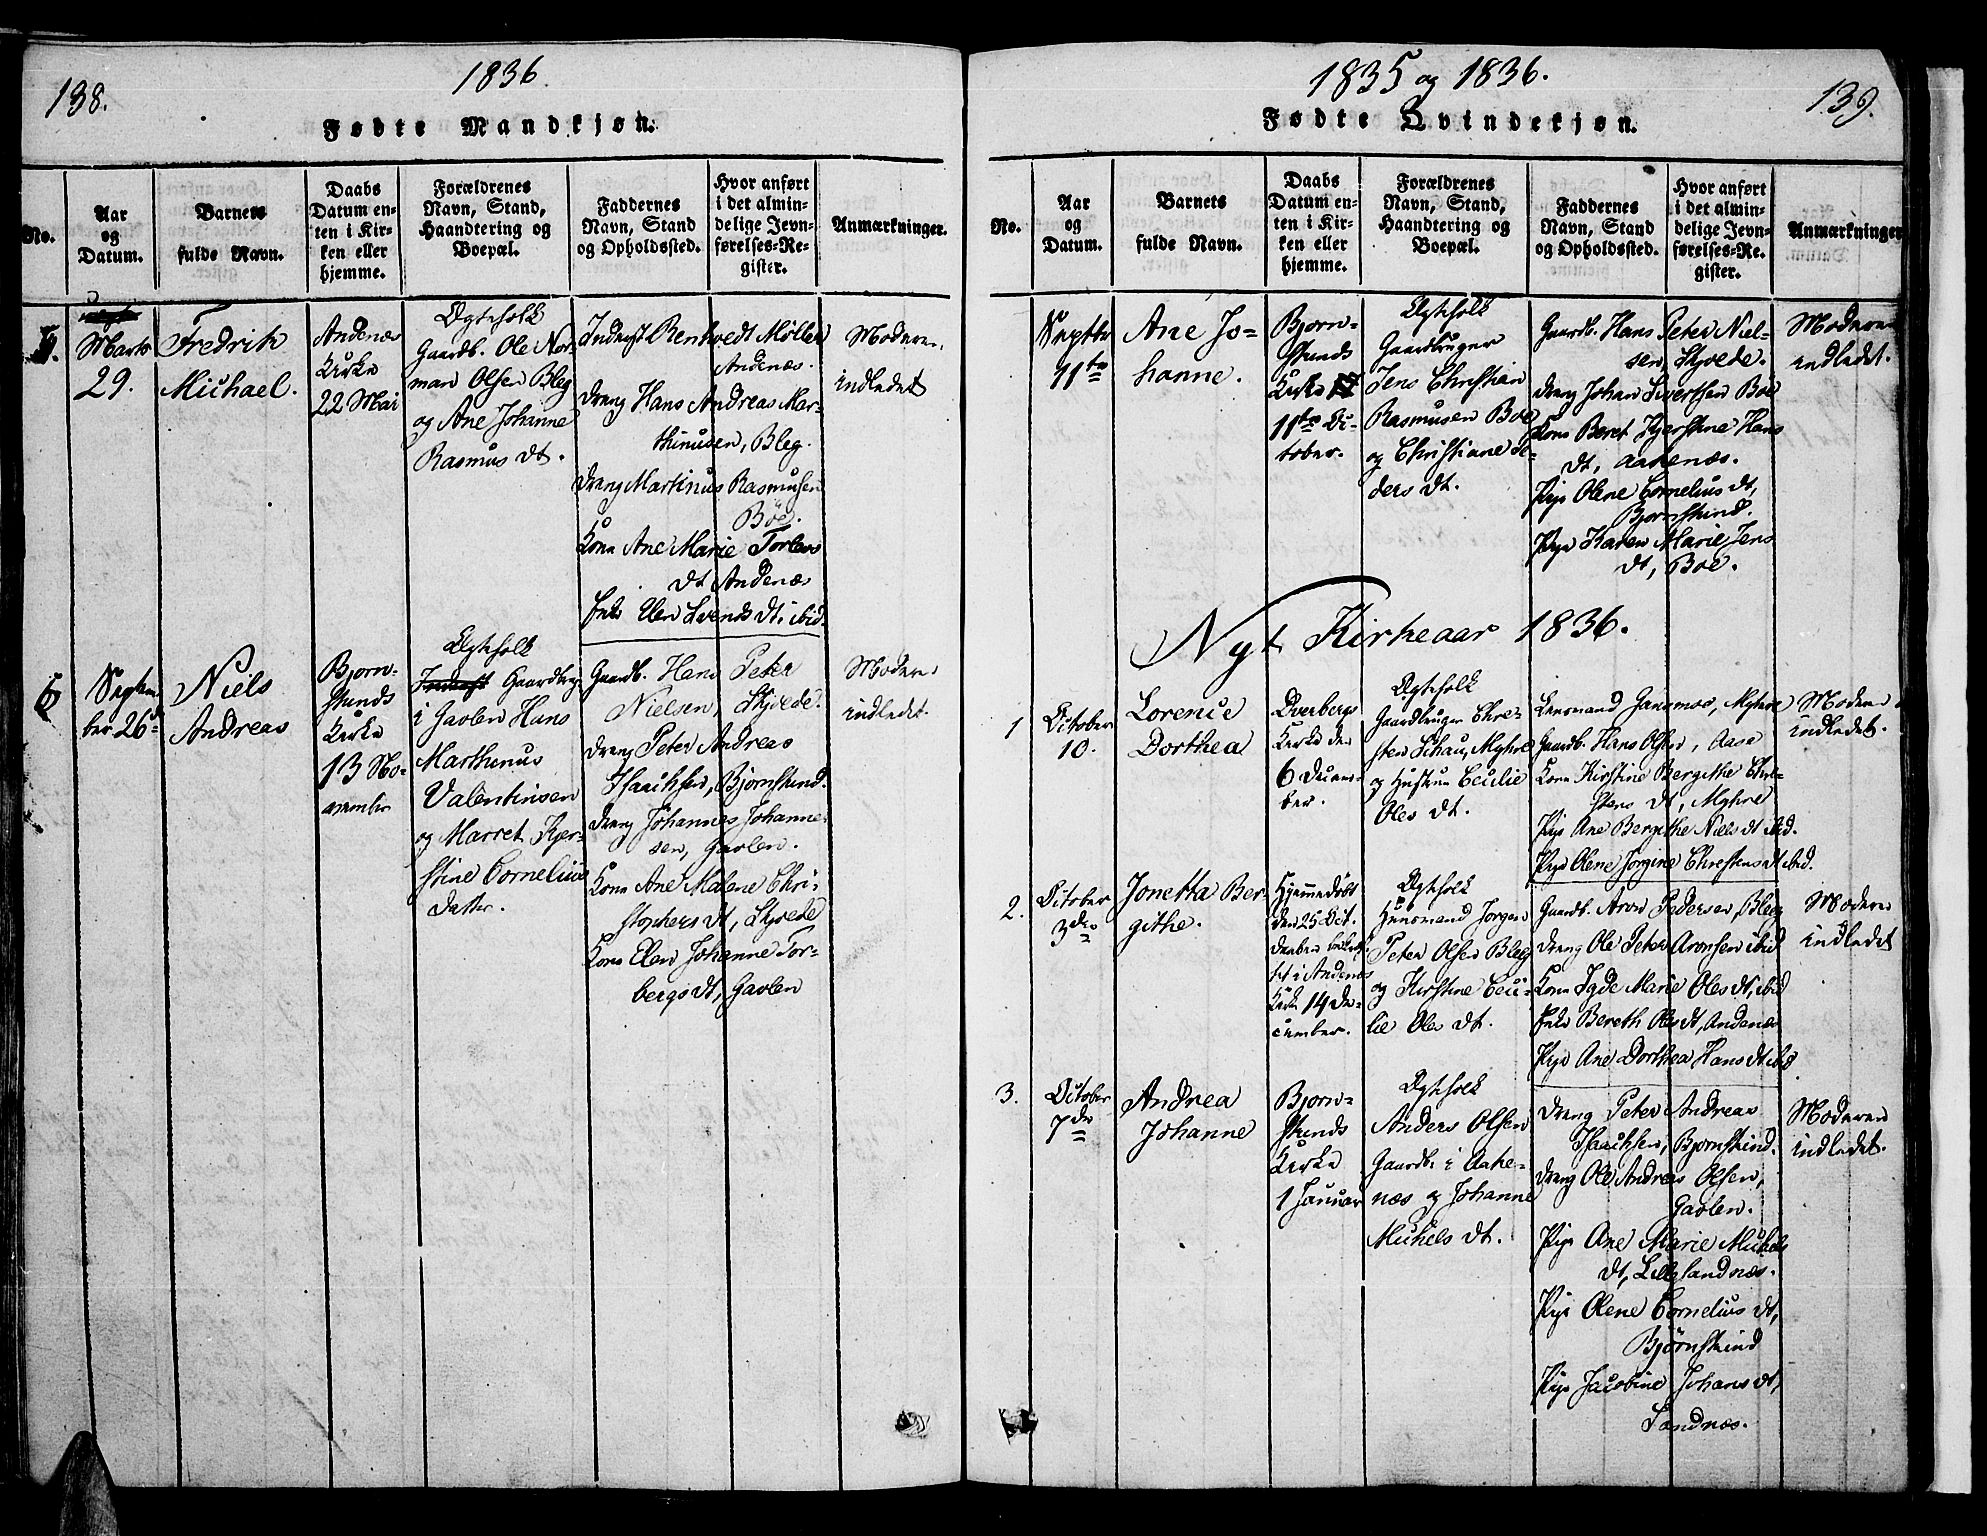 138.
1836.
Fødte Mandkjøn.
No.
Aar
og
Datum.
Barnets
fulde Navn.
Daabs
Datum en-
ten i Kir-
ken eller
hjemme.
Forældrenes
Navn, Stand,
Haandtering og
Boepæl.
Faddernes
Navn, Stand
og Opholdssted.
Hvor anført
i det almin-
delige Jevn-
førelses-Re-
gister.
Anmærkninger.
5.
Marts
29.
Fredrik
Michael.
Andenæs
Kirke
22 Mai
Ægtefolk
Gaardb. Ole Nor-
man Olsen Bleg
og Ane Johanne
Rasmus dt.
Inderst Renhoedt Møller
Andenæs.
dreng Hans Andreas Mar-
thinusen, Bleg.
dreng Martinus Rasmusen
Böe.
Kone Ane Marie Torlevs
dt Andenæs
Enke Elen Svends dt, ibid.
Moderen
indledet
6
Septem-
ber 26d
Niels
Andreas
Bjorn-
skinds
Kirke
13 No-
vember
Ægtefolk
Gaardbrug.
i Gavlen Hans
Marthinus
Valentinsen
og Marret Kjer-
stine Cornelius
datter.
Gaardb. Hans Peter
Nielsen, Skjvede.
dreng Peter Andreas
Isachsen, Bjornskind.
dreng Johannes Johanne-
sen, Gavlen.
Kone Ane Malene Chri-
stophers dt, Skjvede
Kone Elen Johanne Tor-
bergs dt, Gavlen
Moderen
indledet.
1835 og 1836.
139.
Fødte Qvindekjøn.
No.
Aar
og
Datum.
Barnets
fulde Navn.
Daabs
Datum en-
ten i Kir-
ken eller
hjemme.
Forældrenes
Navn, Stand,
Haandtering og
Boepæl.
Faddernes
Navn, Stand
og Opholdssted.
Hvor anført
i det almin-
delige Jevn-
førelses-Re-
gister.
Anmærkninger
Septbr
11te
Ane Jo-
hanne.
Bjorn-
skinds
Kirke
11te Oc-
tober.
Ægtefolk
Gaardbruger
Jens Christian
Rasmusen Boe
og Christiane Pe-
ders dt.
Gaardb. Hans Peter Niel-
sen, Skjvede.
dreng Johan Sivertsen Boe
Kone Beret Kjerstine Hans
dt, Aakenæs.
Pige Olene Cornelius dt,
Bjornskind.
Pige Karen Marie Jens
dt, Boe.
Moderen
indledet.
Nyt Kirkeaar 1836.
1
October
10.
Lorence
Dorthea
Dverbergs
Kirke den
6 Decem-
ber.
Ægtefolk
Gaardbruger Chri-
sten Schau, Myhre
og Hustrue Cecilie
Oles dt.
Lensmand Gansmoe, Myhre
Gaardb. Hans Olsen, Aase
Kone Kirstine Bergithe Chri-
stens dt, Myhre
Pige Ane Bergithe Niels dt ibid.
Pige Olene Jorgine Christens dt ibid.
Moderen
indledet.
2.
October
3die
Jonetta Ber-
githe.
Hjemmedøbt
den 25 Oct.
Daaben
i Andenæs
Kirke 14 De-
cember.
Ægtefolk
Huusmand Jorgen
Peter Olsen Bleeg
og Kirstine Ceci-
lie Oles dt.
Gaardb. Aron Pedersen, Bleeg
dreng Ole Peter Aronsen ibid
Kone Igde Marie Oles dt, ibid
Enke Bereth Oles dt, Andenæs
Pige Ane Dorthea Hans dt ibid
Moderen
indledet
3.
October
7de
Andrea
Johanne
Bjorn-
skinds
Kirke
1 Januar
Ægtefolk
Anders Olsen
Gaardb. i Aake-
næs og Johanne
Michels dt.
dreng Peter Andreas
Isachsen, Bjornskind.
dreng Ole Andreas Olsen,
Gavlen.
Pige Ane Marie Michels
dt, Lillelandnæs.
Pige Olene Cornelius dt,
Björnskind
Pige Jacobine Johans dt,
Sandnæs.
Moderen
indledet.